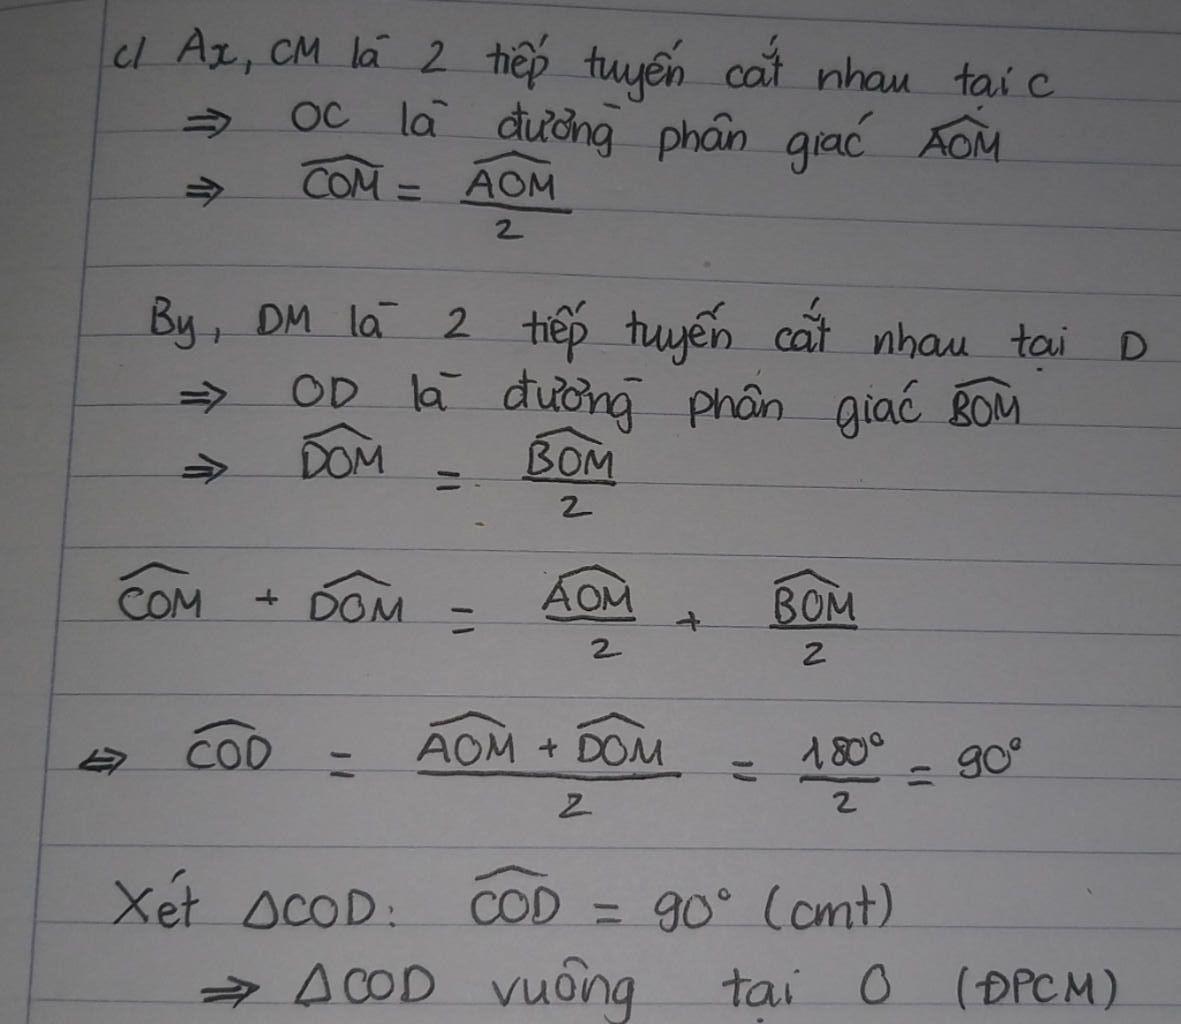 c/ Ax, CM là 2 tiếp tuyến cắt nhau tại C
⇒ OC là đường phân giác \widehat{AOM}
⇒ \widehat{COM} = \frac{\widehat{AOM}}{2}
By, DM là 2 tiếp tuyến cắt nhau tại D
⇒ OD là đường phân giác \widehat{BOM}
⇒ \widehat{DOM} = \frac{\widehat{BOM}}{2}
\widehat{COM} + \widehat{DOM} = \frac{\widehat{AOM}}{2} + \frac{\widehat{BOM}}{2}
⇔ \widehat{COD} = \frac{\widehat{AOM} + \widehat{DOM}}{2} = \frac{180°}{2} = 90°
Xét ΔCOD: \widehat{COD} = 90° (cmt)
⇒ ΔCOD vuông tại O (ĐPCM)